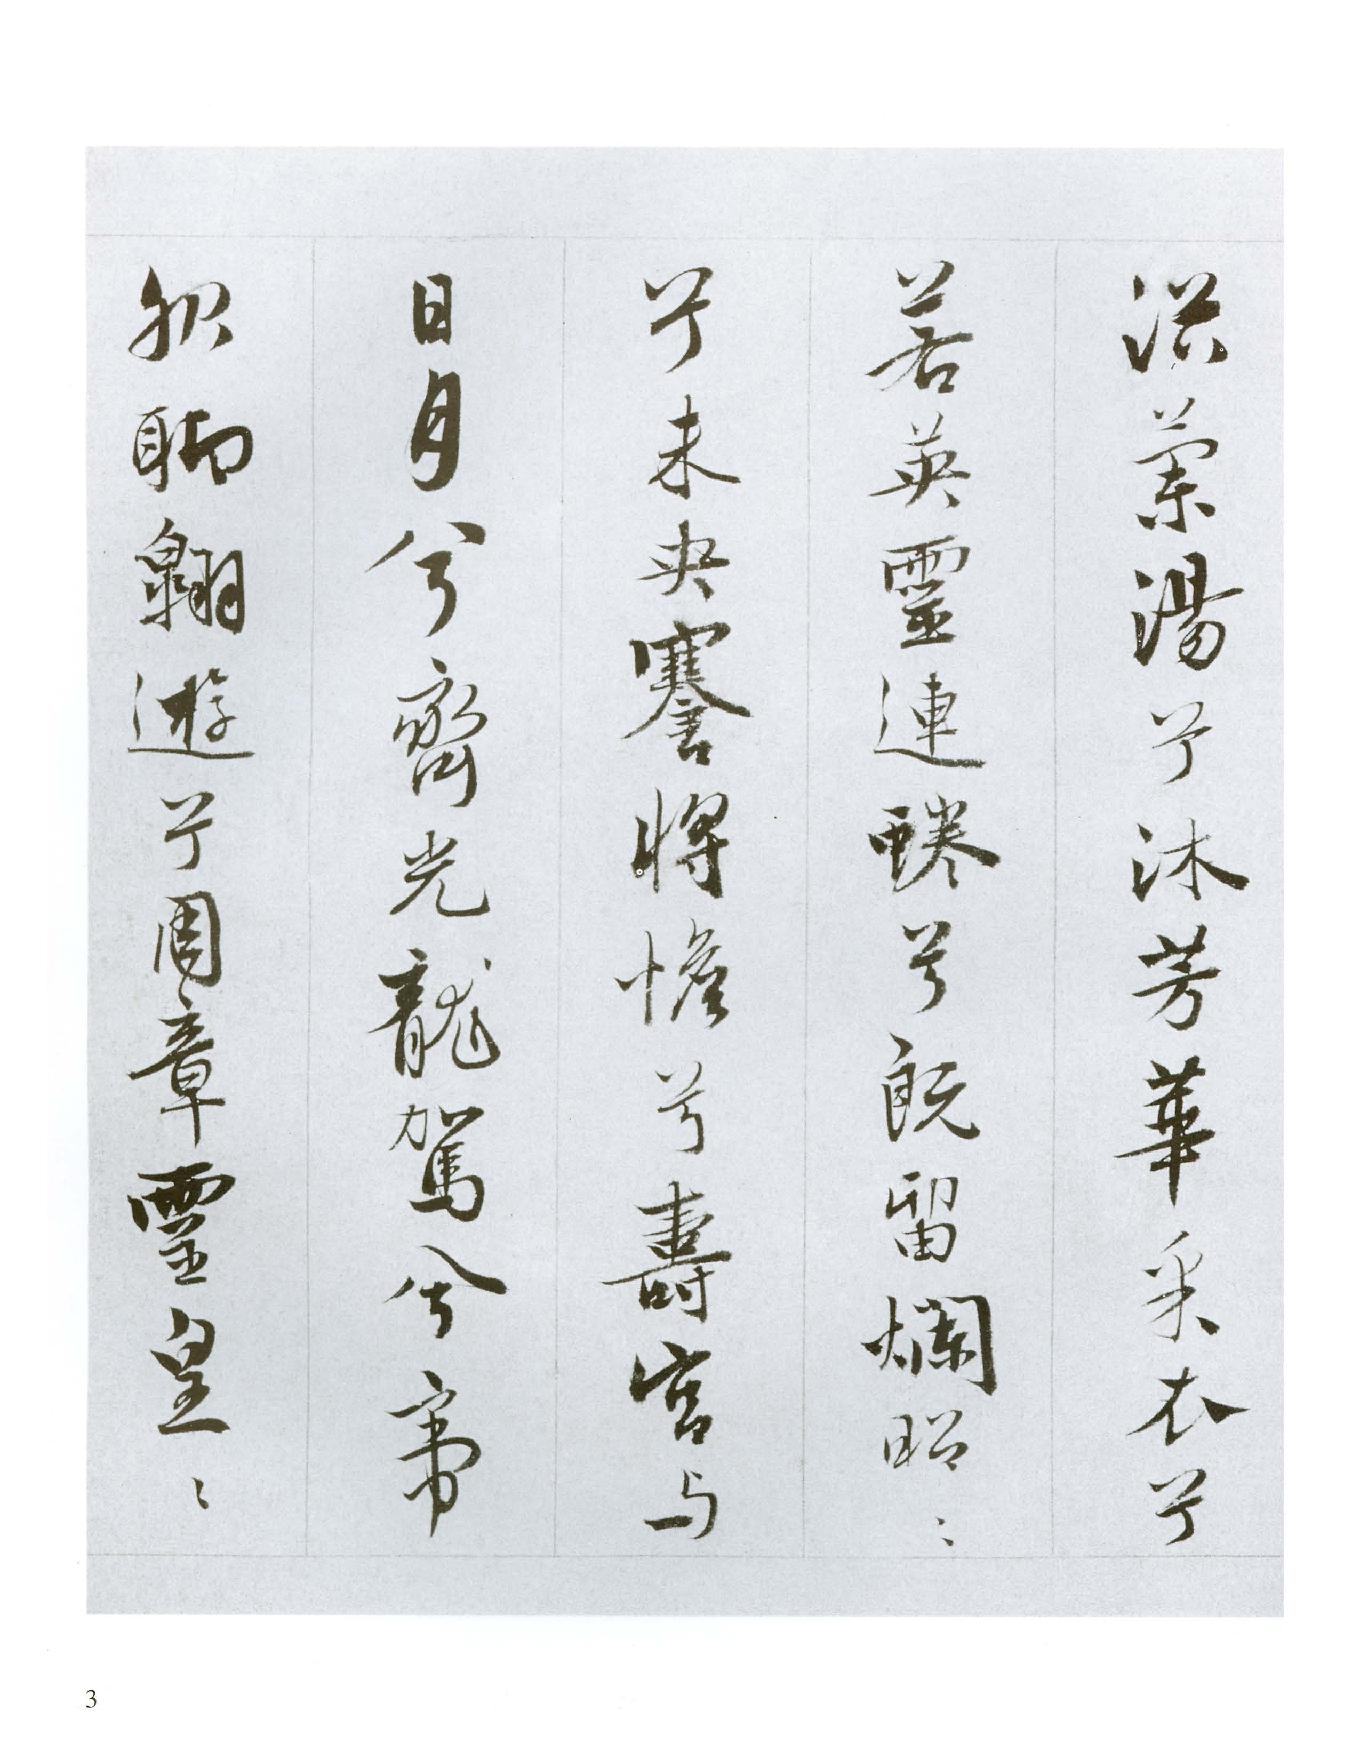 浴蘭湯兮沐芳華采衣兮
若英靈連蜷兮既留爛昭〻
兮未央謇將憺兮壽宮与
日月兮齊光龍駕兮帝
服聊翱遊兮周章靈皇〻
3